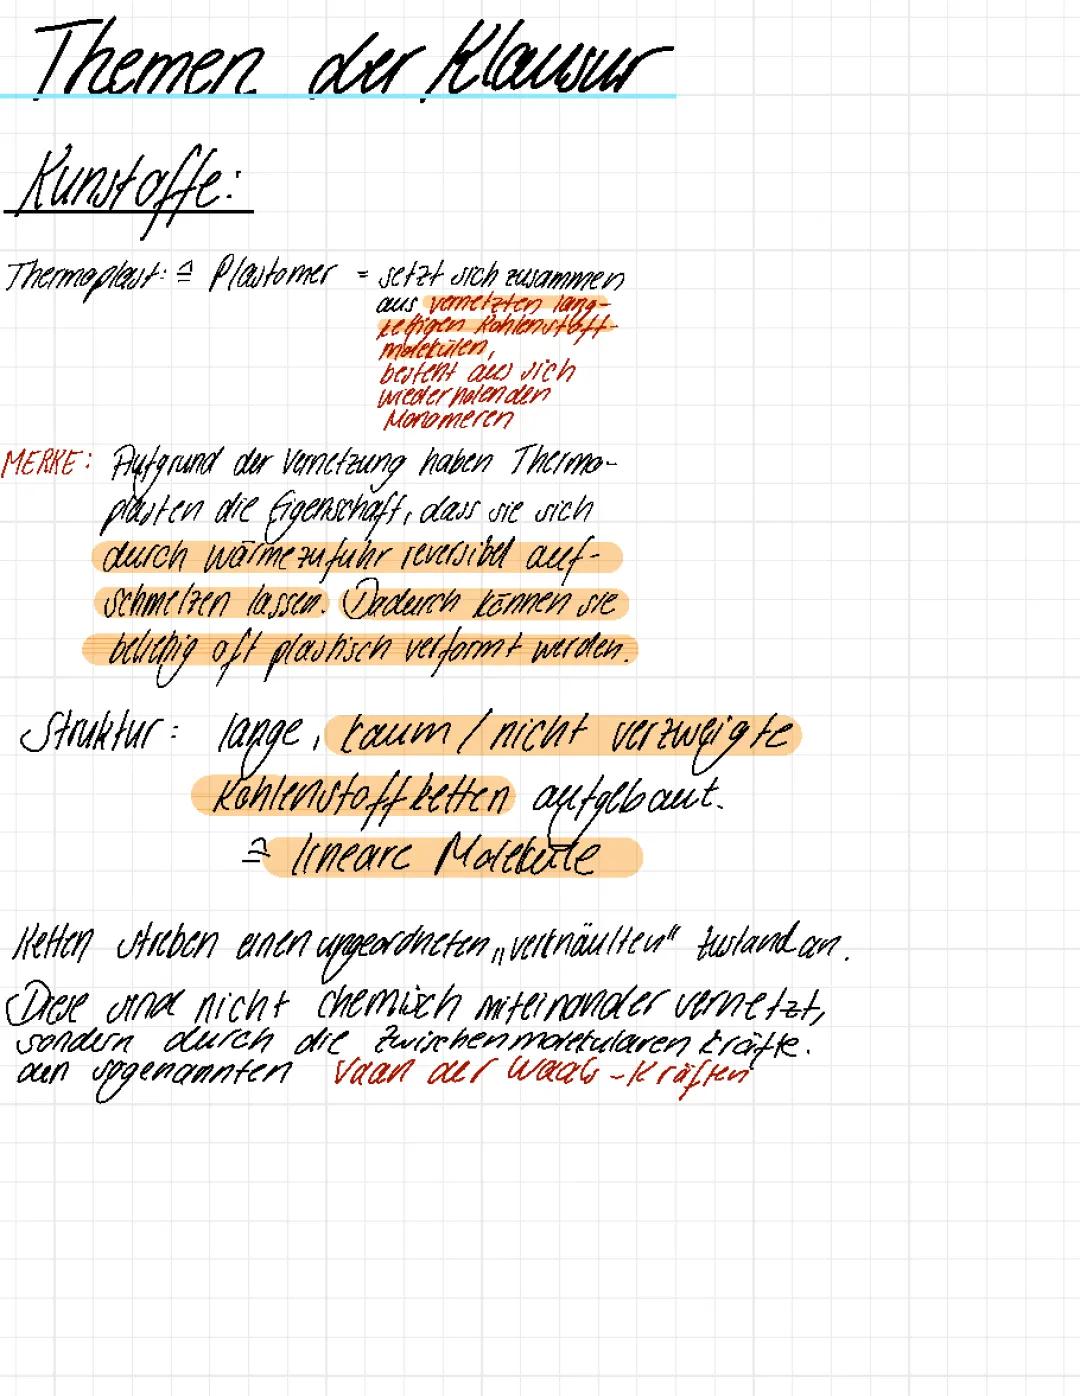 Themen der Klausur
Kunstoffe:
Thermoplast: ≙ Plastomer = setzt sich zusammen
aus vernetzten lang-
kettigen Kohlenstoff-
molekülen,
besteht aus sich
wiederholenden
Monomeren
MERKE: Aufgrund der Vernetzung haben Thermo-
plasten die Eigenschaft, dass sie sich
durch wärmezufuhr reversibel auf-
schmelzen lassen. Dadurch können sie
beliebig oft plastisch verformt werden.
Struktur: lange, kaum / nicht verzweigte
Kohlenstoffketten aufgebaut.
≙ lineare Moleküle
Ketten streben einen ungeordneten „verknäulten" Zustand an.
Diese sind nicht chemisch miteinander vernetzt,
sondern durch die zwischenmolekularen kräfte.
den sogenannten Vaan der Waals-Kräften